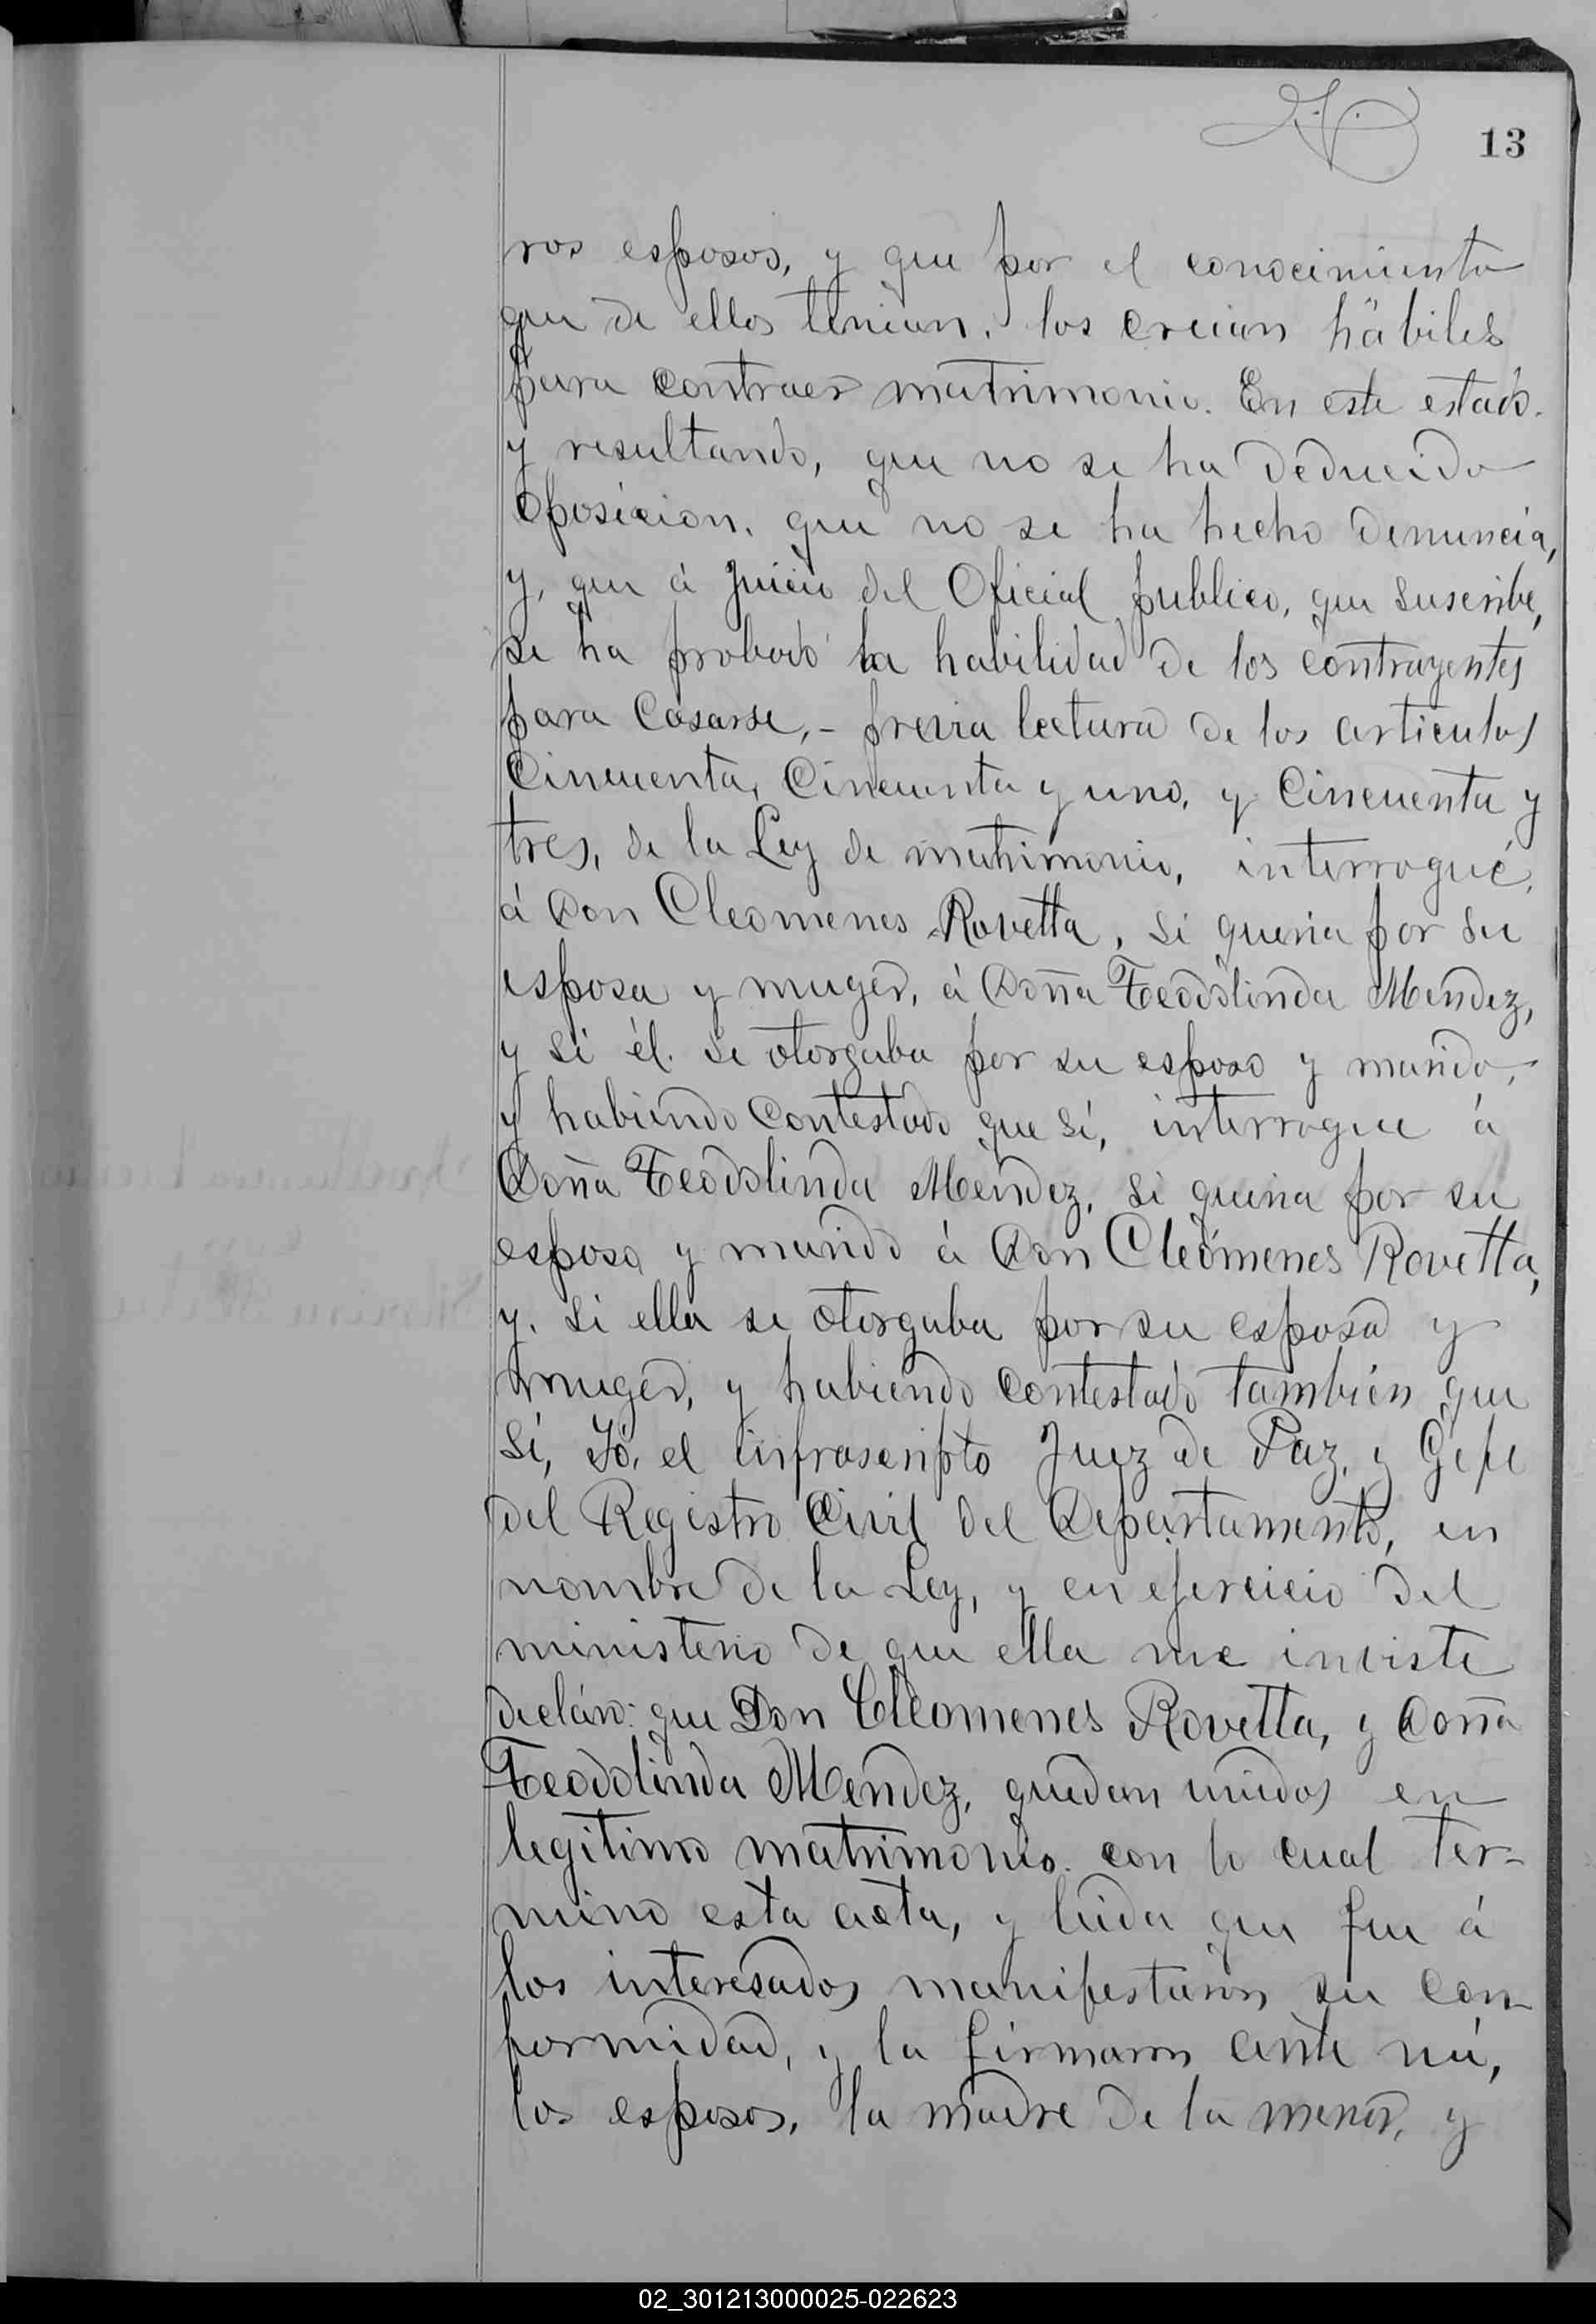 13
ros esposos, y que por el conocimiento
que de ellos tenian, los creian hábiles
para contraer matrimonio. En este estado.
y resultando, que no se ha deducido
oposicion, que no se ha hecho denuncia,
y, que á juicio del Oficial publico, que suscribe,
se ha probado la habilidad de los contrayentes
para casarse, - previa lectura de los articulos
Cincuenta, Cincuenta y uno, y Cincuenta y
tres, de la Ley de matrimonio, interrogué,
á Don Cleomenes Rovetta, si queria por su
esposa y muger, á Doña Teodolinda Mendez,
y si él se otorgaba por su esposo y marido,
y habiendo contestado que sí, interrogue á
Doña Teodolinda Mendez, si queria por su
esposo y marido á Don Cleómenes Rovetta,
y, si ella se otorgaba por su esposa y
muger, y habiendo contestado tambien que
sí, Yó, el infrascripto Juez de Paz, y Gefe
del Registro Civil del Departamento, en
nombre de la Ley, y en ejercicio del
ministerio de que ella me inviste
declaro: que Don Cleomenes Rovetta, y Doña
Teodolinda Mendez, quedan unidos en
legitimo matrimonio. con lo cual ter-
mino esta acta, y leida que fue á
los interesados manifestaron su con-
formidad, y la firmaron ante mí,
los esposos, la madre de la menor, y
02_301213000025-022623